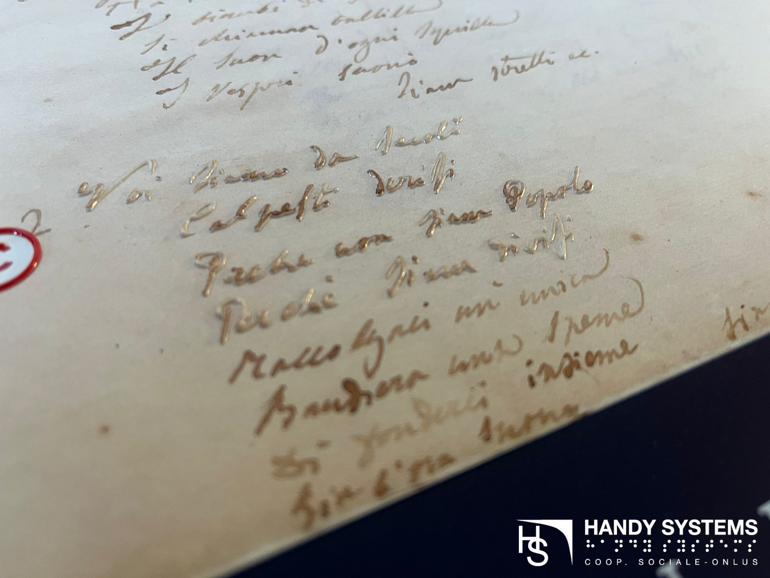 I bimbi
Si chiaman Balilla
Il suon d'ogni squilla
I Vespri suonò
Siam stretti ec.
2
Noi siamo da secoli
Calpesti derisi
Perche non siam Popolo
Perchè siam divisi
Raccolgaci un'unica
Bandiera una Speme
Di fonderci insieme
Già l'ora suonò
C
HS
HANDY SYSTEMS
⠓⠁⠝⠙⠽ ⠎⠽⠎⠞⠑⠍⠎
COOP. SOCIALE-ONLUS